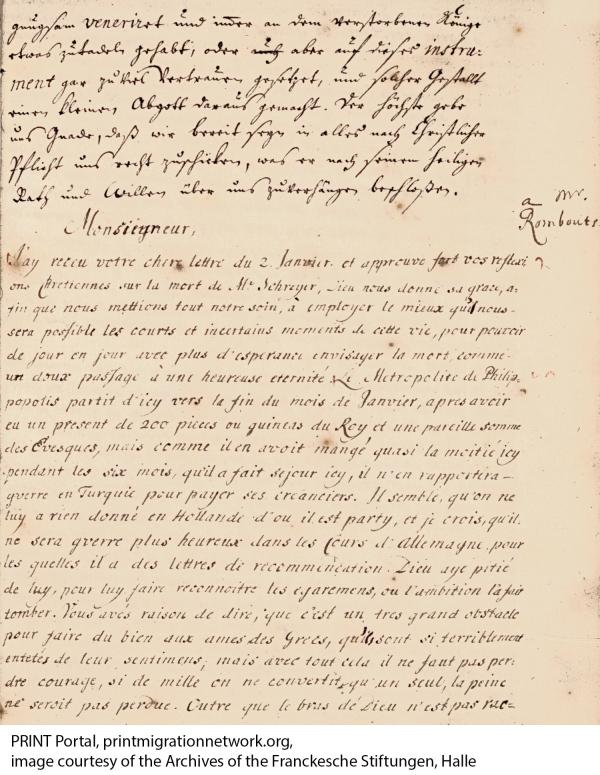 gnugsam veneriret und immer an dem verstorbenen Könige
etwas zutadeln gehabt, oder aber auf dieses instru-
ment gar zu viel Vertrauen gesetzet, und solcher Gestallt
einen kleinen Abgott daraus gemacht. Der höchste gebe
uns Gnade, daß wir bereit seyn in alles nach Christlicher
Pflicht uns recht zuschicken, was er nach seinem heiligen
Rath und Willen über uns zuverhängen beschloßen.
a Mr.
Rombouts
Monsieyneur,
J'ay receu votre chere lettre du 2. Janvier. et approuve fort vos reflexi
ons Chretiennes sur la mort de Mr Schreyer, Dieu nous donne sa grace, a-
fin que nous mettions tout notre soin, à employer le mieux qu'il nous-
sera possible les courts et incertains momens de cette vie, pour pouvoir
de jour en jour avec plus d'esperance envisager la mort, comme-
un doux passage à une heureuse eternité. Le Metropolite de Philip-
popolis partit d'icy vers la fin du mois de Janvier, apres avoir
eu un present de 200 pieces ou guineas du Roy et une pareille somme
des Evesques, mais comme il en avoit mangé quasi la moitié icy
pendant les six mois, qu'il a fait sejour icy, il n'en rapportera-
gverre en Turquie pour payer ses creanciers. Il semble, qu'on ne
luy a rien donné en Hollande d'ou il est party, et je crois, qu'il
ne sera gverre plus heureux dans les Cours d'Allemagne, pour
les quelles il a des lettres de recommencation. Dieu aye pitié
de luy, pour luy faire reconnoitre les egaremens, ou l'ambition l'a fait
tomber. Vous avés raison de dire, que c'est un tres grand obstacle
pour faire du bien aux ames des Grecs, qu'ils sont si terriblement
entetés de leur sentimens; mais avec tout cela il ne faut pas per-
dre courage, si de mille on ne convertit qu'un seul, la peine
ne seroit pas perdue. Outre que le bras de Dieu n'est pas rac-
PRINT Portal, printmigrationnetwork.org,
image courtesy of the Archives of the Franckesche Stiftungen, Halle